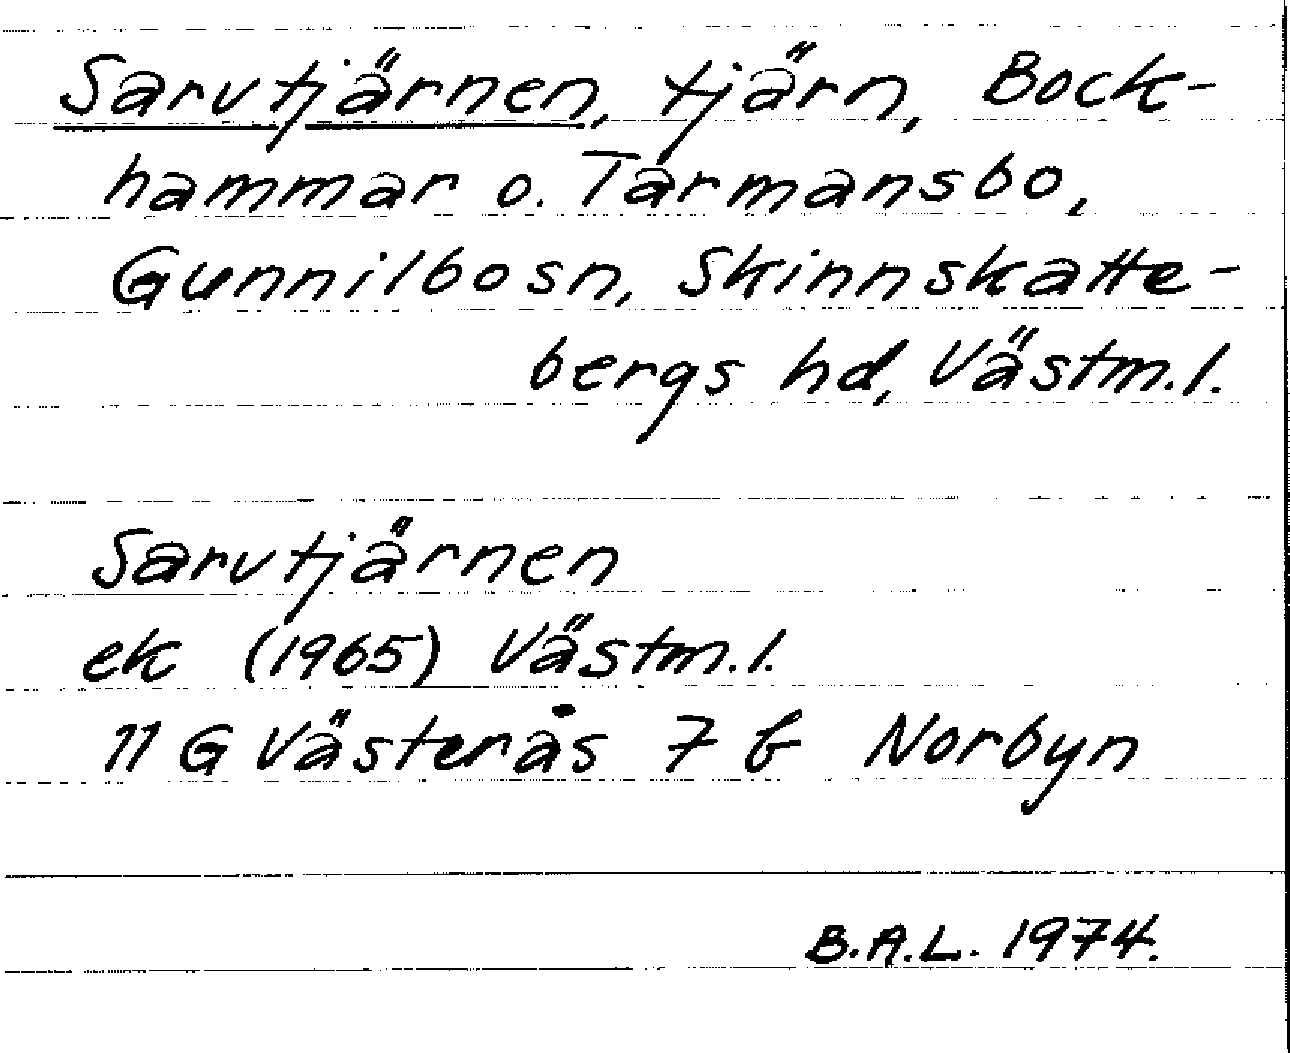 Sarvtjärnen, tjärn, Bock-
hammar o. Tarmansbo,
Gunnilbosn, Skinnskatte-
bergs hd, Västm.l.
Sarvtjärnen
ek (1965) Västm.l.
11 G Västerås 7 b Norbyn
B.A.L. 1974.